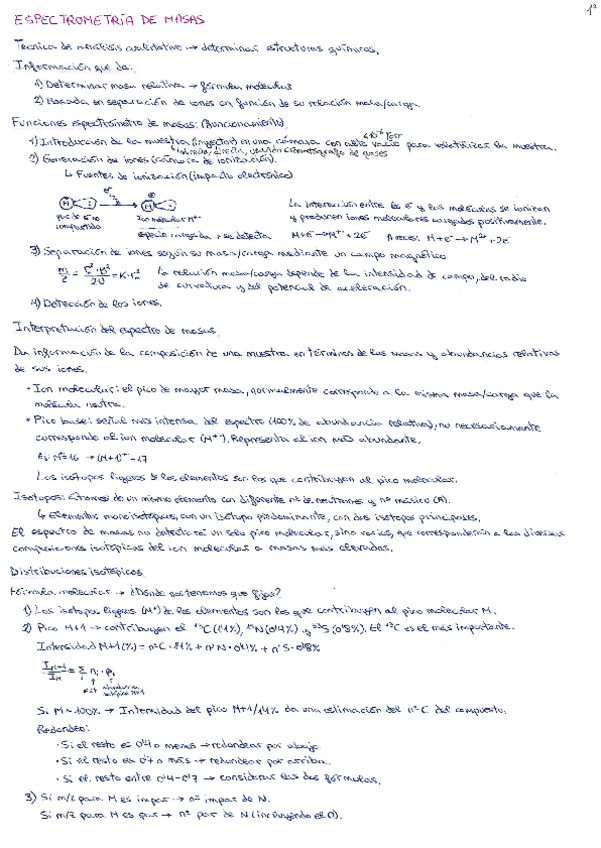 1º
ESPECTROMETRÍA DE MASAS
Técnica de análisis cualitativo → determinar estructuras químicas.
Información que da:
1) Determinar masa relativa → fórmula molecular
2) Basada en separación de iones en función de su relación masa/carga
Funciones espectrómetro de masas: (funcionamiento)
<10⁻⁶ Torr
1) Introducción de la muestra (inyector) en una cámara con alto vacío para volatilizar la muestra.
directa, cromatógrafo de gases
2) Generación de iones (cámara de ionización).
↳ Fuentes de ionización (impacto electrónico)
La interacción entre los e⁻ y las moléculas se ionizan
y producen iones moleculares cargados positivamente.
par de e⁻ no compartido
Ion molecular M⁺
especie cargada → se detecta
M+e⁻→M⁺+2e⁻ A veces: M+e⁻→M²⁺+3e⁻
3) Separación de iones según su masa/carga mediante un campo magnético
La relación masa/carga depende de la intensidad de campo, del radio
de curvatura y del potencial de aceleración.
4) Detección de los iones.
Interpretación del espectro de masas
Da información de la composición de una muestra en términos de las masas y abundancias relativas
de sus iones.
• Ion molecular: el pico de mayor masa, normalmente corresponde a la misma masa/carga que la
molécula neutra.
• Pico base: señal más intensa del espectro (100% de abundancia relativa), no necesariamente
corresponde al ion molecular (M⁺). Representa el ion más abundante.
Ej: M⁺=16 → (M+1)⁺=17
Los isótopos ligeros de los elementos son los que contribuyen al pico molecular.
Isótopos: Átomos de un mismo elemento con diferente nº de neutrones y nº másico (A).
↳ Elementos monoisotópicos, con un isótopo predominante, con dos isótopos principales.
El espectro de masas no detectará un solo pico molecular, sino varios, que corresponderán a las diversas
composiciones isotópicas del ion molecular a masas más elevadas.
Distribuciones isotópicas
Fórmula molecular → ¿Dónde nos tenemos que fijar?
1) Los isótopos ligeros (M⁺) de los elementos son los que contribuyen al pico molecular M.
2) Pico M+1 → contribuyen el ¹³C (1'1%), ¹⁵N (0'4%) y ³³S (0'8%). El ¹³C es el más importante.
Intensidad M+1(%) = nºC · 1'1% + nºN · 0'4% + nºS · 0'8%
Si M=100% → Intensidad del pico M+1/1'1% da una estimación del nºC del compuesto.
Redondeo:
· Si el resto es 0'4 o menos → redondear por abajo.
· Si el resto es 0'7 o más → redondear por arriba.
· Si el resto entre 0'4-0'7 → considerar las dos fórmulas.
3) Si m/z para M es impar → nº impar de N.
Si m/z para M es par → nº par de N (incluyendo el 0).